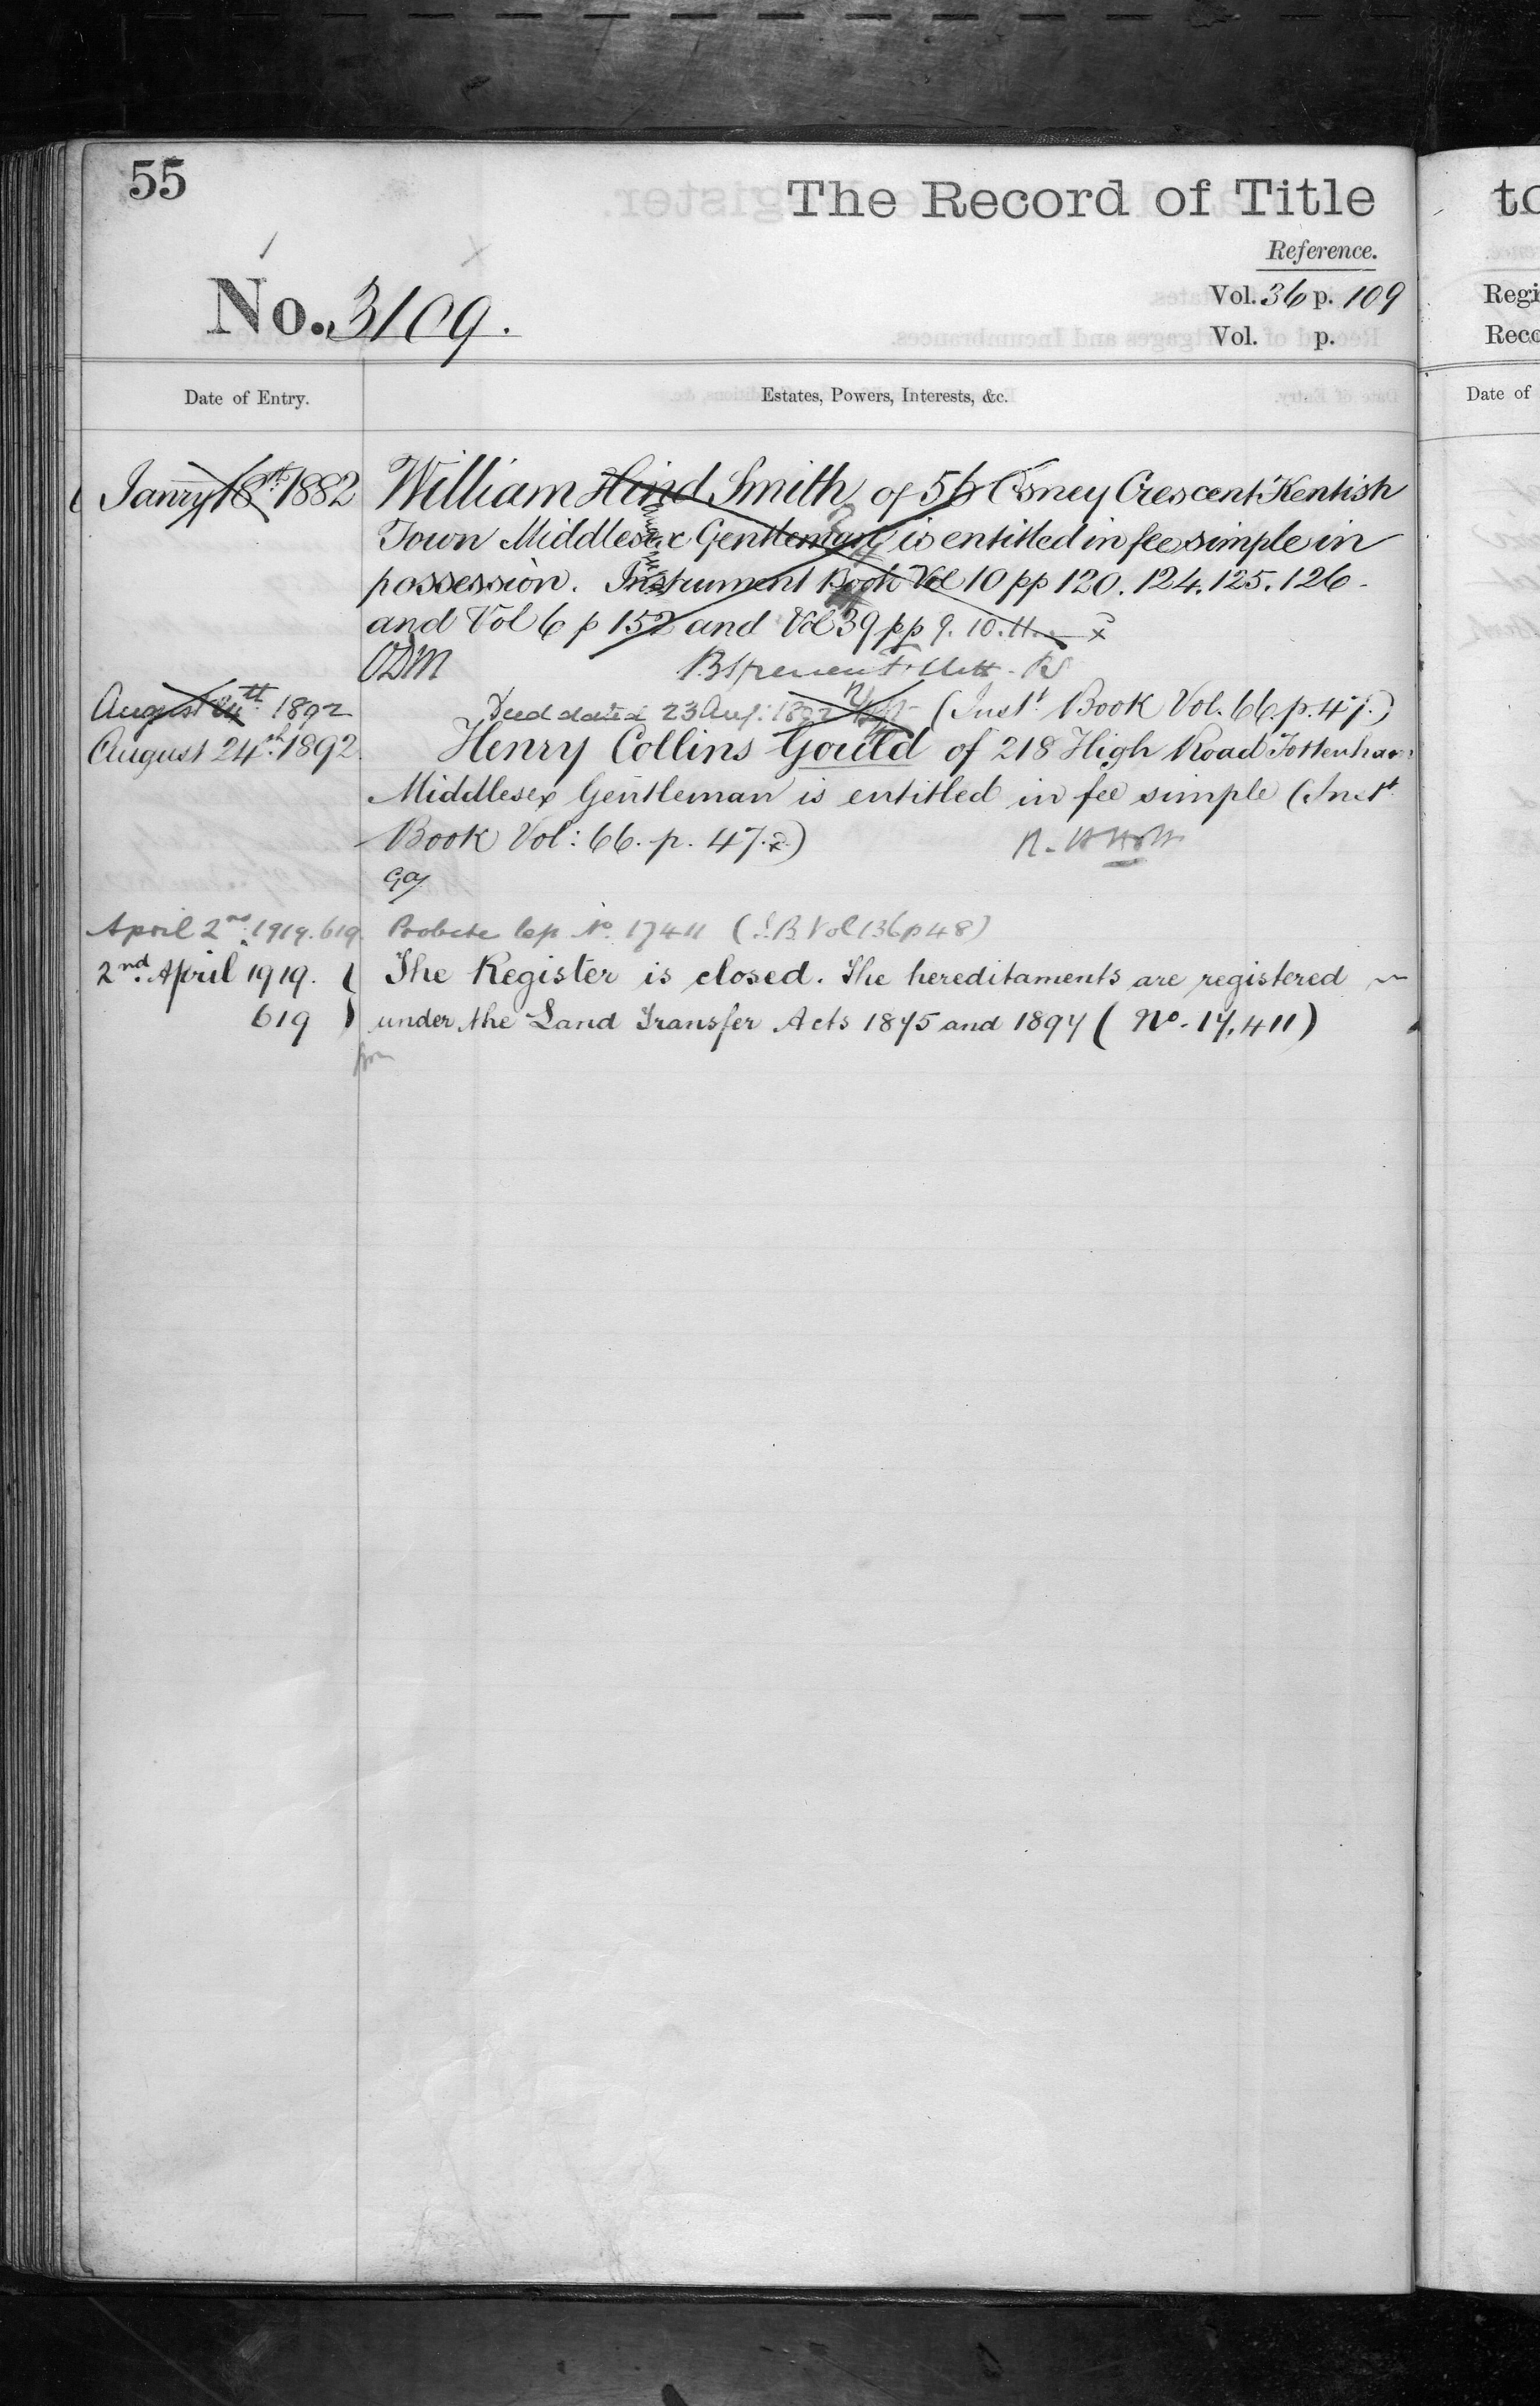 55
The Record of Title
Reference.
No. 3109.
Vol. 36 p. 109
Vol. p.
Date of Entry. Estates, Powers, Interests, &c.
Janry 18th 1882 William Hind Smith of 56 Osney Crescent Kentish
Town Middlesex Gentleman is entitled in fee simple in
possession. Instrument Book Vol 10 pp 120. 124. 125. 126
and Vol 6 p 152 and Vol 39 pp 9. 10. 11.
ODM
August 24th 1892 Deed dated 23 Aug: 1892 (Inst. Book Vol. 66. p. 47.)
August 24th 1892 Henry Collins Gould of 218 High Road Tottenham
Middlesex Gentleman is entitled in fee simple (Inst
Book Vol: 66. p. 47.)
April 2nd 1919. 619 No. 17411 (I.B Vol 136 p 48)
2nd April 1919. The Register is closed. The hereditaments are registered
619 under the Land Transfer Acts 1875 and 1897 (No. 17,411)
to
Regi
Reco
Date of